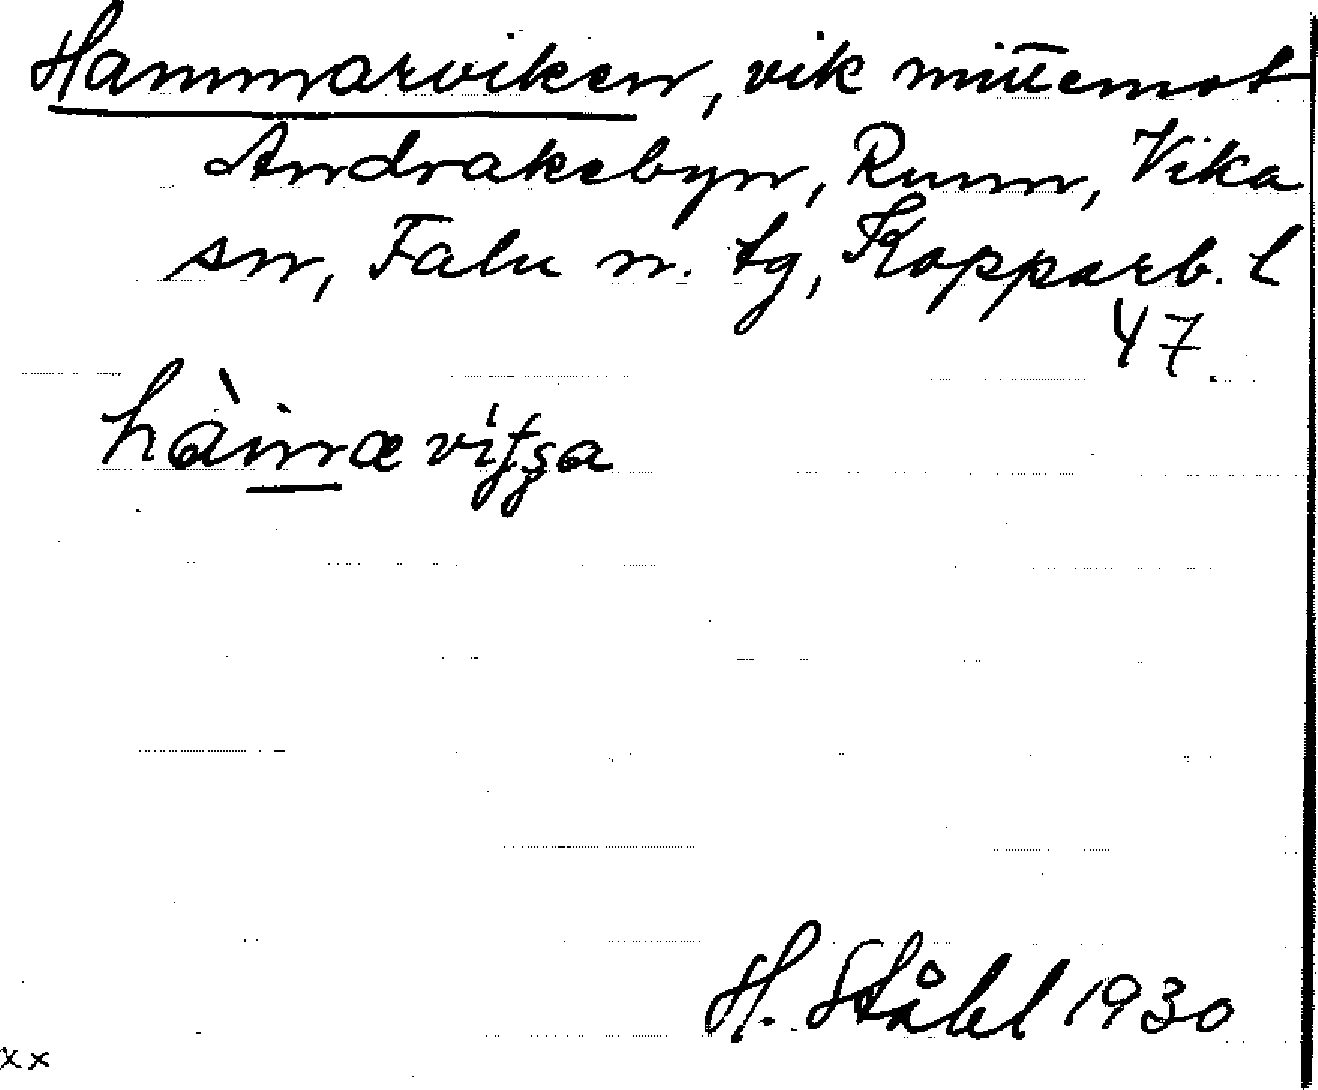 Hammarviken, vik mittemot
Andraksbyn, Runn, Vika
sn, Falu n. tg, Kopparb. l
47
H. Ståhl 1930
xx